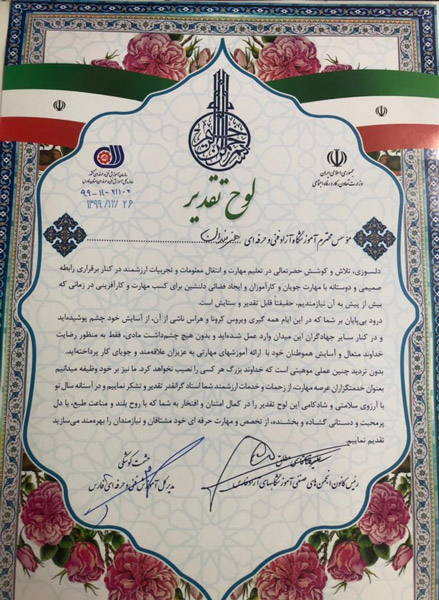 جمهوری اسلامی ایران
وزارت تعاون، کار و رفاه اجتماعی
سازمان آموزش فنی و حرفه‌ای کشور
۹۹-۱۱-۲۱۱۰۲
۱۳۹۹/۱۲/۲۶
لوح تقدیر
مؤسس محترم آموزشگاه آزاد فنی و حرفه ای
دلسوزی، تلاش و کوشش حضرتعالی در تعلیم مهارت و انتقال معلومات و تجربیات ارزشمند در کنار برقراری رابطه
صمیمی و دوستانه با مهارت جویان و کارآموزان و ایجاد فضائی دلنشین برای کسب مهارت و کارآفرینی در زمانی که
بیش از پیش به آن نیازمندیم، حقیقتا قابل تقدیر و ستایش است.
درود بی‌پایان بر شما که در این ایام همه گیری ویروس کرونا و هراس ناشی از آن، از آسایش خود چشم پوشیده‌اید
و در کنار سایر جهادگران این میدان وارد عمل شده‌اید و بدون هیچ چشم‌داشت مادی، فقط به منظور رضایت
خداوند متعال و آسایش هموطنان خود با ارائه آموزشهای مهارتی به عزیزان علاقه‌مند و جویای کار پرداخته‌اید.
بدون تردید چنین عملی موهبتی است که خداوند بزرگ هر کسی را نصیب نخواهد کرد. ما نیز بر خود وظیفه میدانیم
بعنوان خدمتگزاران عرصه مهارت، از زحمات و خدمات ارزشمند شما استاد گرانقدر تقدیر و تشکر نماییم و در آستانه سال نو
با آرزوی سلامتی و شادکامی این لوح تقدیر را در کمال امتنان و افتخار به شما که با روح بلند و مناعت طبع، با دل
پرمحبت و دستانی گشاده و بخشنده، از تخصص و مهارت حرفه ای خود مشتاقان و نیازمندان را بهره‌مند می‌سازید
تقدیم نماییم.
رئیس کانون انجمن های صنفی آموزشگاههای آزاد فارس
حشمت کوشکی
مدیرکل آموزش فنی و حرفه ای فارس